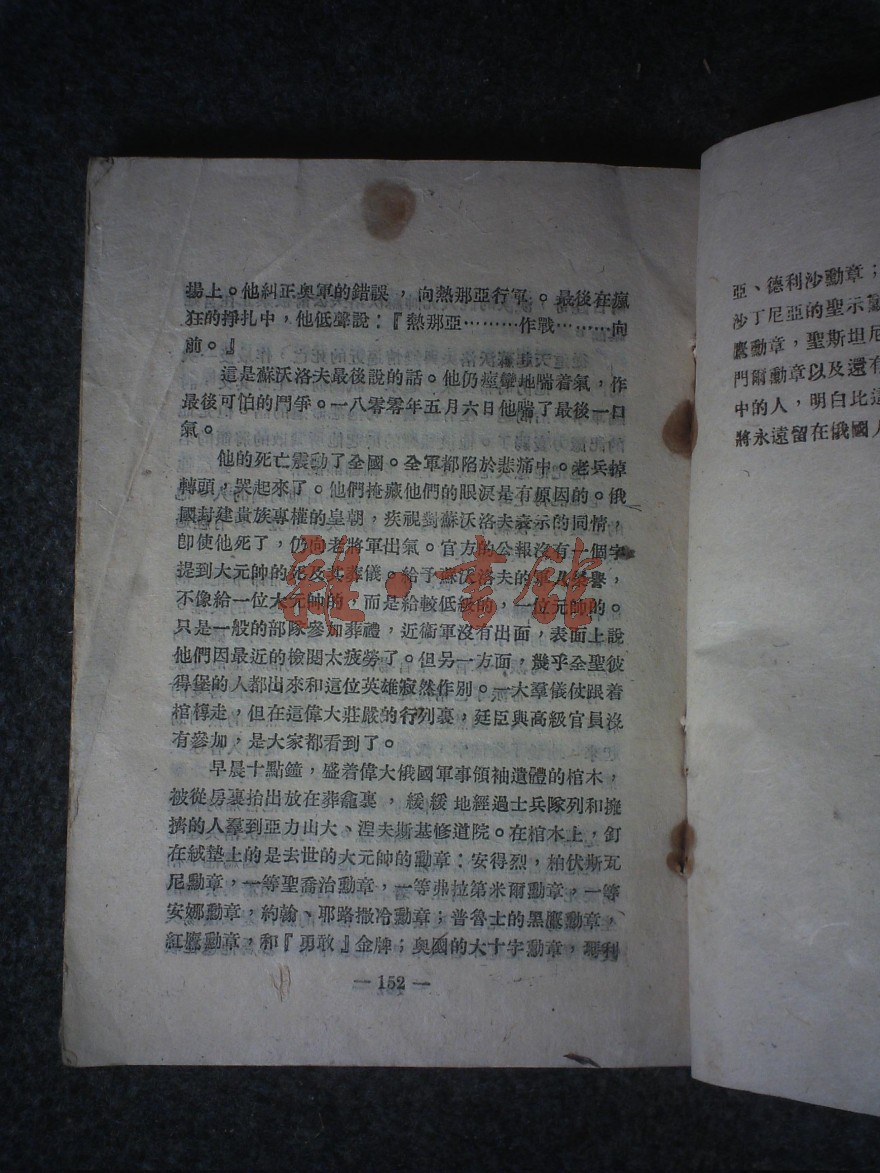 揚上。他糾正奥軍的錯誤，向熱那亞行軍。最後在瘋
狂的掙扎中，他低聲說：『熱那亞………作戰………向
前。』
這是蘇沃洛夫最後說的話。他仍痙攣地喘着氣，作
最後可怕的鬥爭。一八零零年五月六日他喘了最後一口
氣。
他的死亡震動了全國。全軍都陷於悲痛中。老兵掉
轉頭，哭起來了。他們掩藏他們的眼淚是有原因的。俄
國封建貴族專權的皇朝，疾視對蘇沃洛夫表示的同情，
卽使他死了，仍向老將軍出氣。官方的公報沒有一個字
提到大元帥的死及其葬儀。給予蘇沃洛夫的軍人榮譽，
不像給一位大元帥的，而是給較低級的，一位元帥的。
只是一般的部隊參加葬禮，近衞軍沒有出面，表面上說
他們因最近的檢閱太疲勞了。但另一方面，幾乎全聖彼
得堡的人都出來和這位英雄寂然作別。一大羣儀仗跟着
棺椁走，但在這偉大莊嚴的行列裏，廷臣與高級官員沒
有參加，是大家都看到了。
早晨十點鐘，盛着偉大俄國軍事領袖遺體的棺木，
被從房裏抬出放在葬龕裏，緩緩地經過士兵隊列和擁
擠的人羣到亞力山大、湼夫斯基修道院。在棺木上，釘
在絨墊上的是去世的大元帥的勳章：安得烈，柏伏斯瓦
尼勳章，一等聖喬治勳章，一等弗拉第米爾勳章，一等
安娜勳章，約翰、耶路撒冷勳章；普魯士的黑鷹勳章，
紅鷹勳章，和『勇敢』金牌；奥國的大十字勳章，瑪利
— 152 —
亞、德利沙勳章；
沙丁尼亞的聖示
鷹勳章，聖斯坦尼
門爾勳章以及還有
中的人，明白比這
將永遠留在俄國人
雜·書館